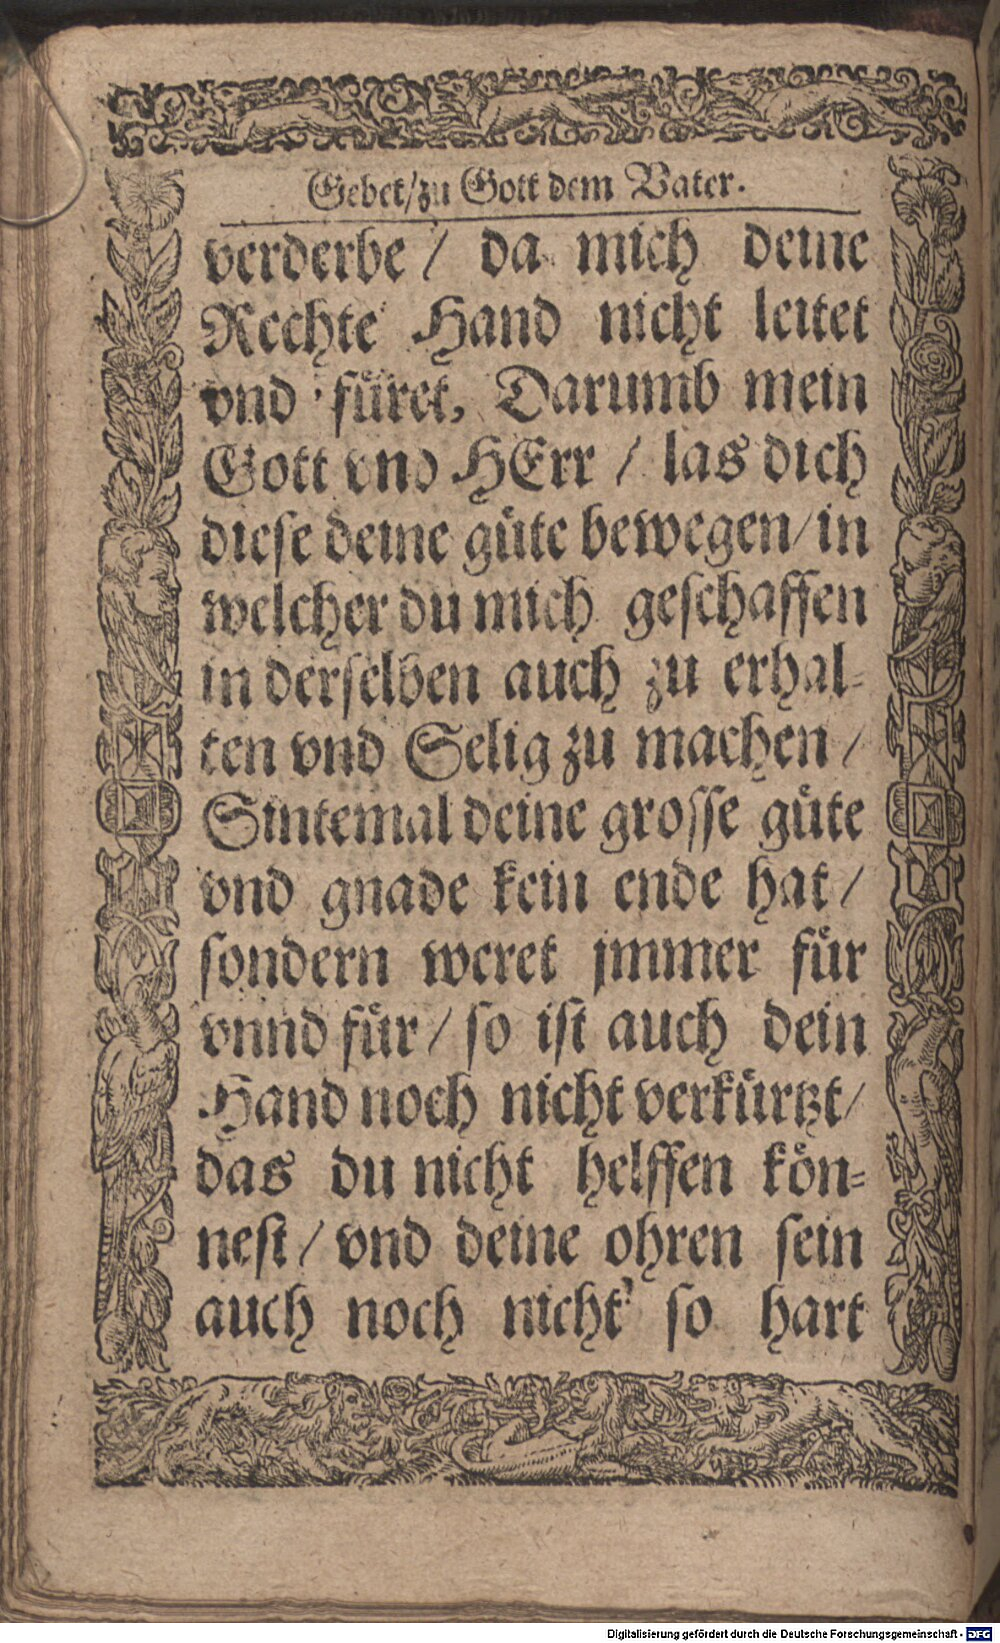 Gebet/zu Gott dem Vater.
verderbe / da mich deine
Rechte Hand nicht leitet
vnd füret, Darumb mein
Gott vnd HErr / las dich
diese deine güte bewegen/in
welcher du mich geschaffen
in derselben auch zu erhal-
ten vnd Selig zu machen /
Sintemal deine grosse güte
vnd gnade kein ende hat /
sondern weret jmmer für
vnnd für / so ist auch dein
Hand noch nicht verkürtzt/
das du nicht helffen kön-
nest / vnd deine ohren sein
auch noch nicht so hart
Digitalisierung gefördert durch die Deutsche Forschungsgemeinschaft - DFG